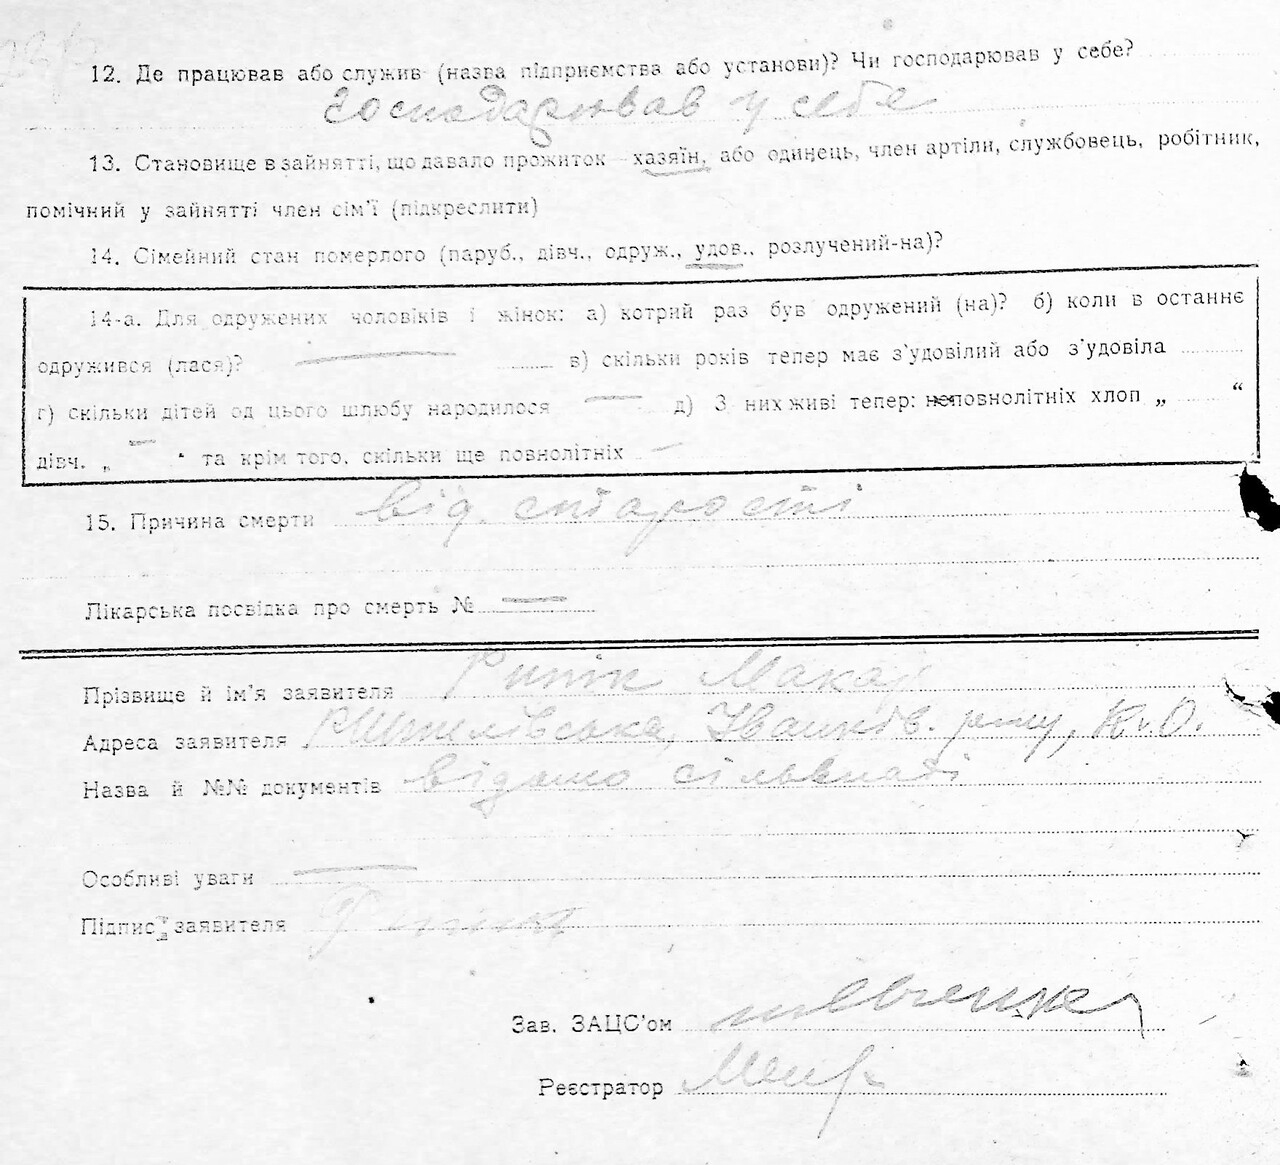 12. Де працював або служив (назва підприємства або установи)? Чи господарював у себе?
господарював у себе
13. Становище в зайнятті, що давало прожиток – хазяїн, або одинець, член артіли, службовець, робітник,
помічний у зайнятті член сім'ї (підкреслити)
14. Сімейний стан померлого (паруб., дівч., одруж., удов., розлучений-на)?
14-а. Для одружених чоловіків і жінок: а) котрий раз був одружений (на)? б) коли в останнє
одружився (лася)? в) скільки років тепер має з'удовілий або з'удовіла
г) скільки дітей од цього шлюбу народилося д) З них живі тепер: неповнолітніх хлоп „ “
дівч. „ “ та крім того, скільки ще повнолітніх
15. Причина смерти від старості
Лікарська посвідка про смерть №
Прізвище й ім'я заявителя Рипік Макар
Адреса заявителя Іванків. р-ну, К. О.
Назва й №№ документів відомо сільвладі
Особливі уваги
Підпис заявителя
Зав. ЗАЦС'ом
Реєстратор